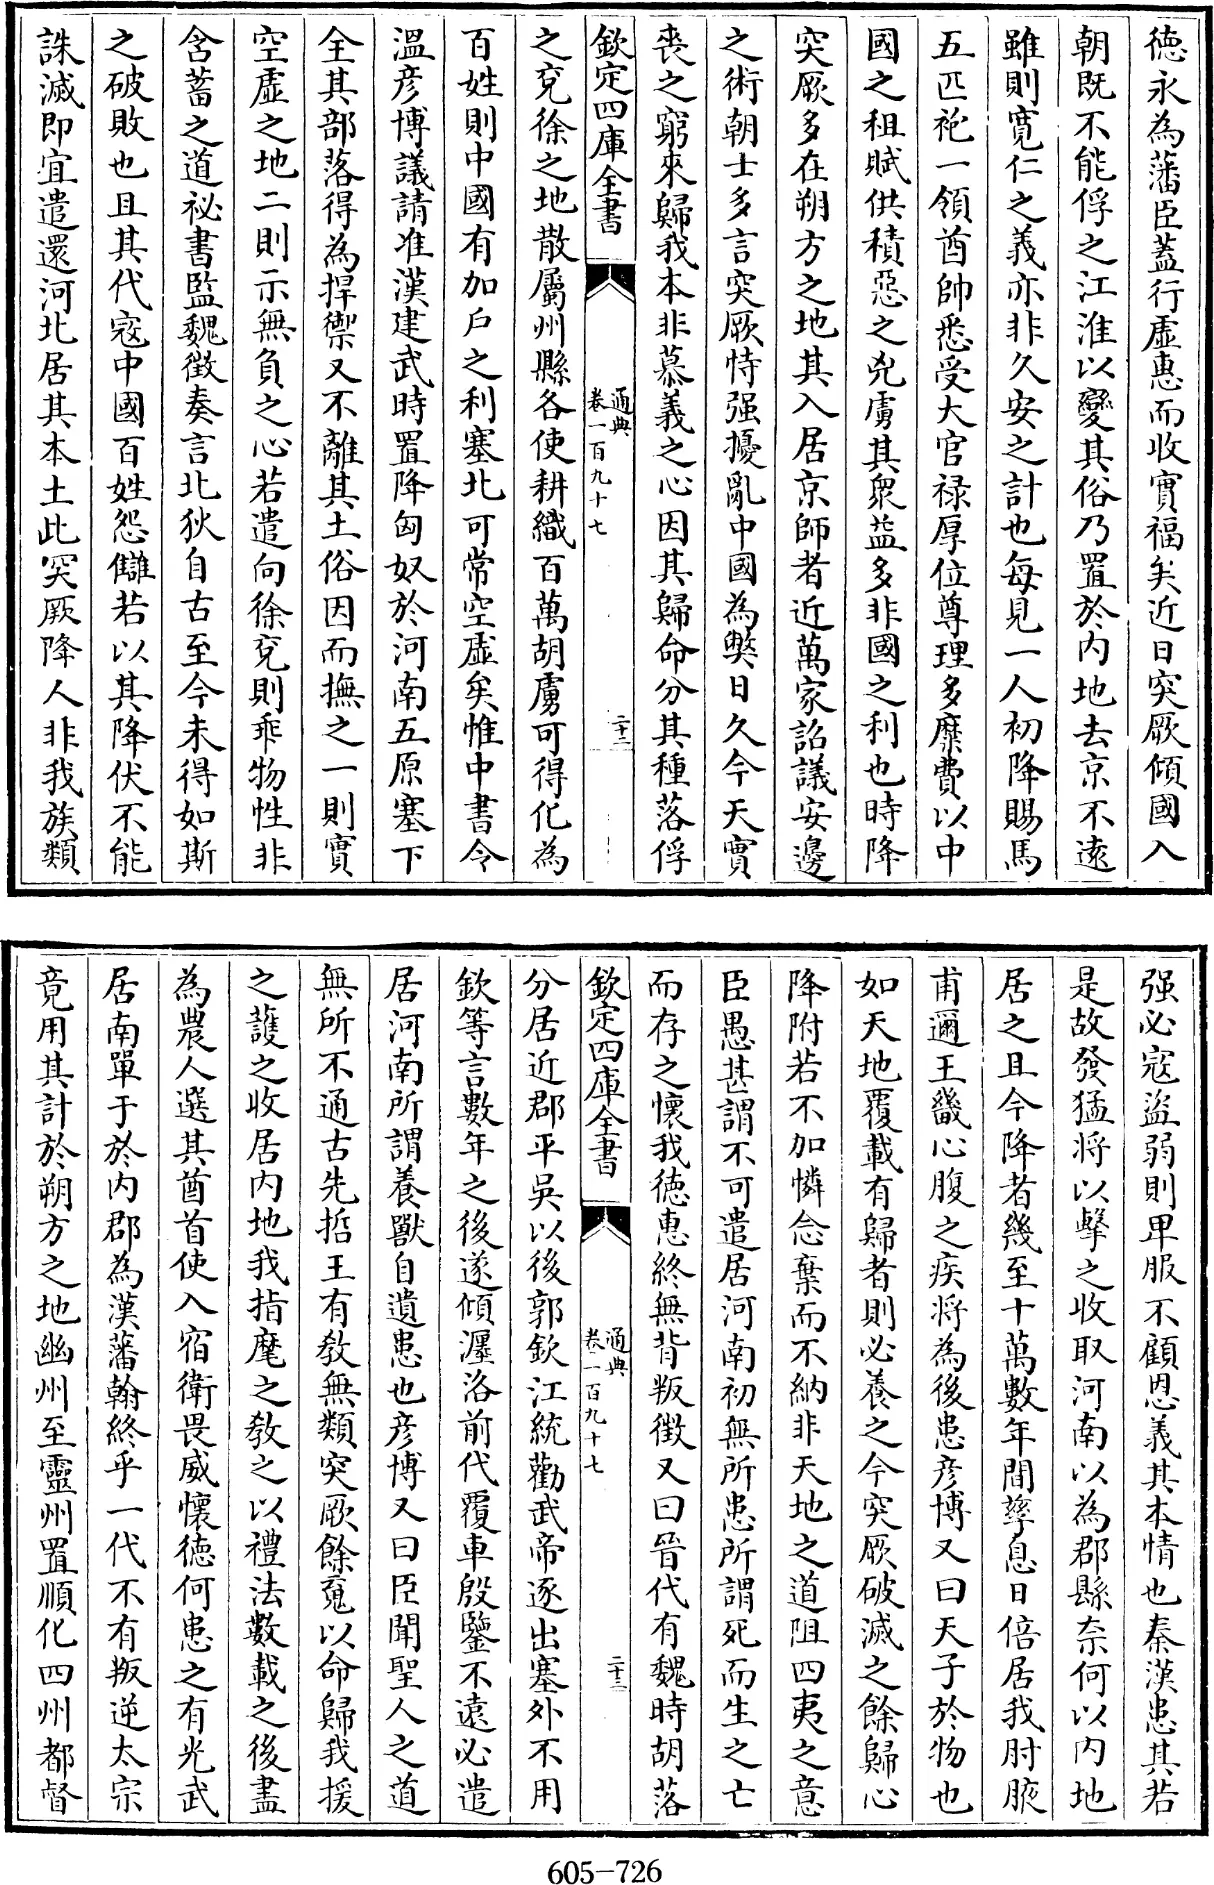 德永為藩臣蓋行虛惠而收實福矣近日突厥傾國入
朝既不能俘之江淮以變其俗乃置於内地去京不遠
雖則寛仁之義亦非久安之計也每見一人初降賜馬
五匹袍一領酋帥悉受大官禄厚位尊理多糜費以中
國之租賦供積惡之兇虜其衆益多非國之利也時降
突厥多在朔方之地其入居京師者近萬家詔議安邊
之術朝士多言突厥恃强擾亂中國為獘日久今天實
喪之窮來歸我本非慕義之心因其歸命分其種落俘
欽定四庫全書
通典
卷一百九十七
二十二
之兗徐之地散屬州縣各使耕織百萬胡虜可得化為
百姓則中國有加戶之利塞北可常空虛矣惟中書令
溫彦博議請准漢建武時置降匈奴於河南五原塞下
全其部落得為捍禦又不離其土俗因而撫之一則實
空虛之地二則示無負之心若遣向徐兗則乖物性非
含蓄之道祕書監魏徴奏言北狄自古至今未得如斯
之破敗也且其代寇中國百姓怨讎若以其降伏不能
誅滅即宜遣還河北居其本土此突厥降人非我族類
强必寇盜弱則卑服不顧恩義其本情也秦漢患其若
是故發猛将以擊之收取河南以為郡縣奈何以内地
居之且今降者幾至十萬數年間孳息日倍居我肘腋
甫邇王畿心腹之疾将為後患彦博又曰天子於物也
如天地覆載有歸者則必養之今突厥破滅之餘歸心
降附若不加憐念棄而不納非天地之道阻四夷之意
臣愚甚謂不可遣居河南初無所患所謂死而生之亡
而存之懷我德惠終無背叛徴又曰晉代有魏時胡落
欽定四庫全書
通典
卷一百九十七
二十三
分居近郡平吳以後郭欽江統勸武帝逐出塞外不用
欽等言數年之後遂傾瀍洛前代覆車殷鑒不遠必遣
居河南所謂養獸自遺患也彦博又曰臣聞聖人之道
無所不通古先哲王有教無類突厥餘䰟以命歸我援
之護之收居内地我指麾之教之以禮法數載之後盡
為農人選其酋首使入宿衛畏威懷德何患之有光武
居南單于於内郡為漢藩翰終乎一代不有叛逆太宗
竟用其計於朔方之地幽州至靈州置順化四州都督
605-726